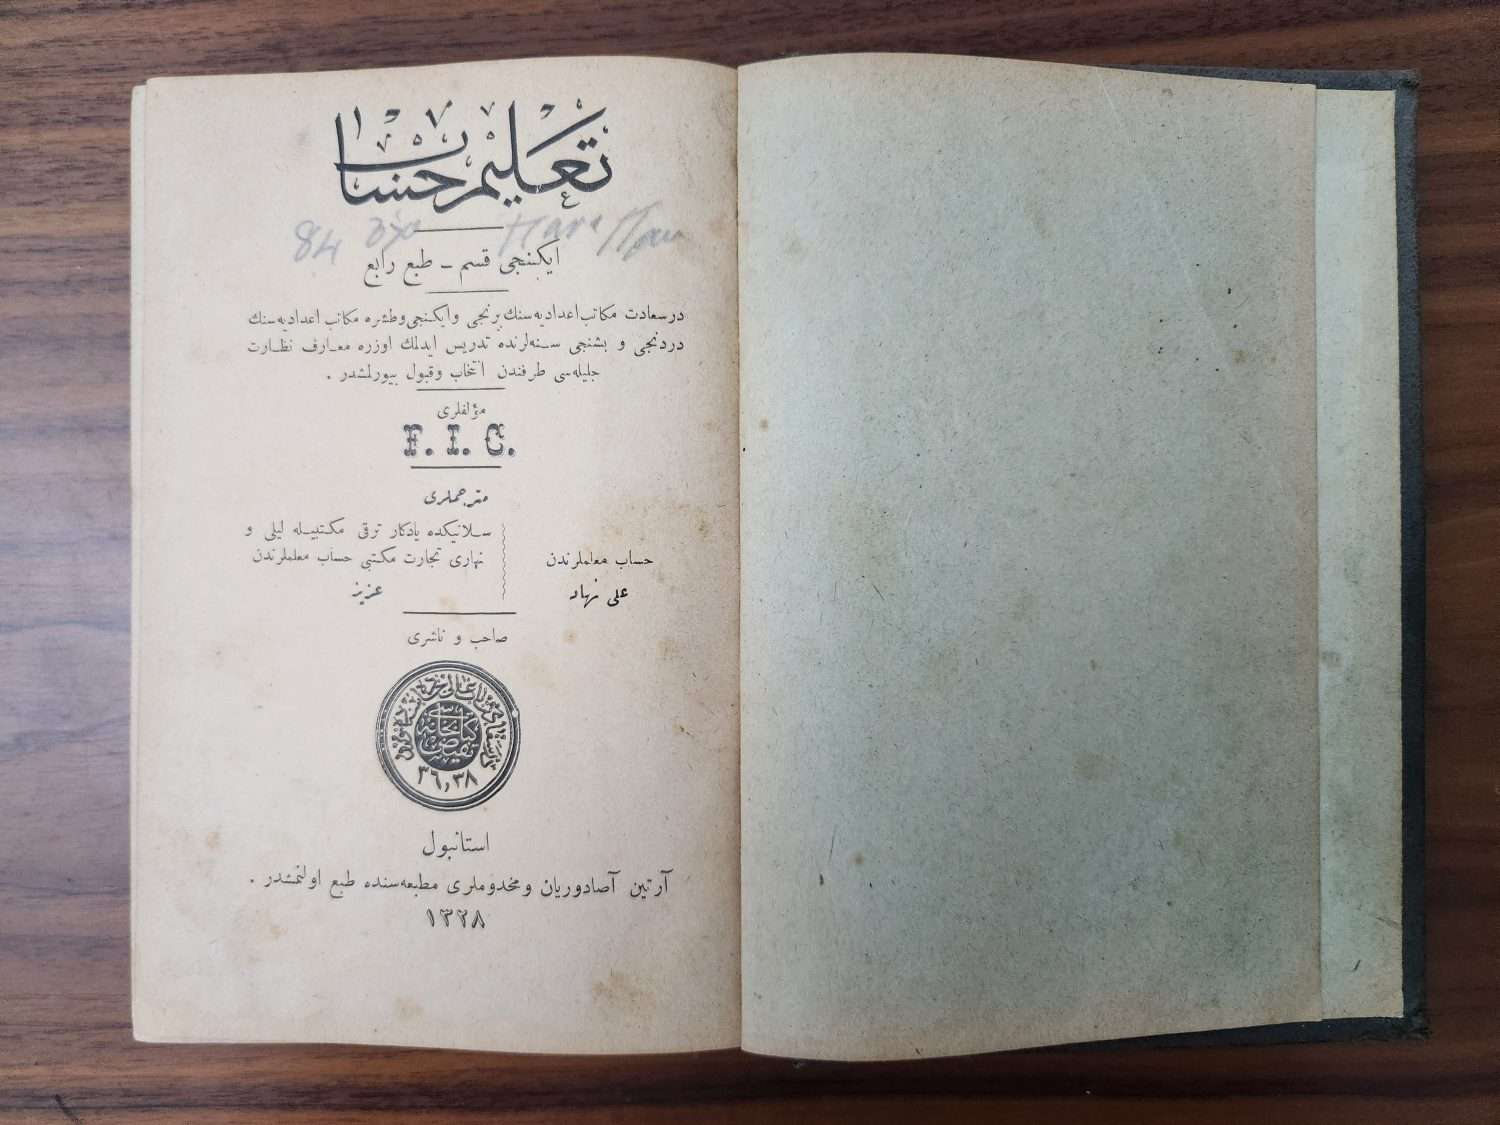 تعليم حساب
84
ايكنجى قسم ـ طبع رابع
درسعادت مكاتب اعداديه‌سنك برنجى و ايكنجى و طشره مكاتب اعداديه‌سنك
دردنجى و بشنجى سنه‌لرنده تدريس ايدلمك اوزره معارف نظارت
جليله‌سى طرفندن انتخاب وقبول بيورلمشدر .
مؤلفلرى
F. I. C.
مترجملرى
حساب معلملرندن
على نهاد
سلانيكده يادكار ترقى مكتبيله ليلى و
نهارى تجارت مكتبى حساب معلملرندن
عزيز
صاحب و ناشرى
٣٦,٣٨
استانبول
آرتين آصادوريان و مخدوملرى مطبعه‌سنده طبع اولنمشدر .
١٣٢٨